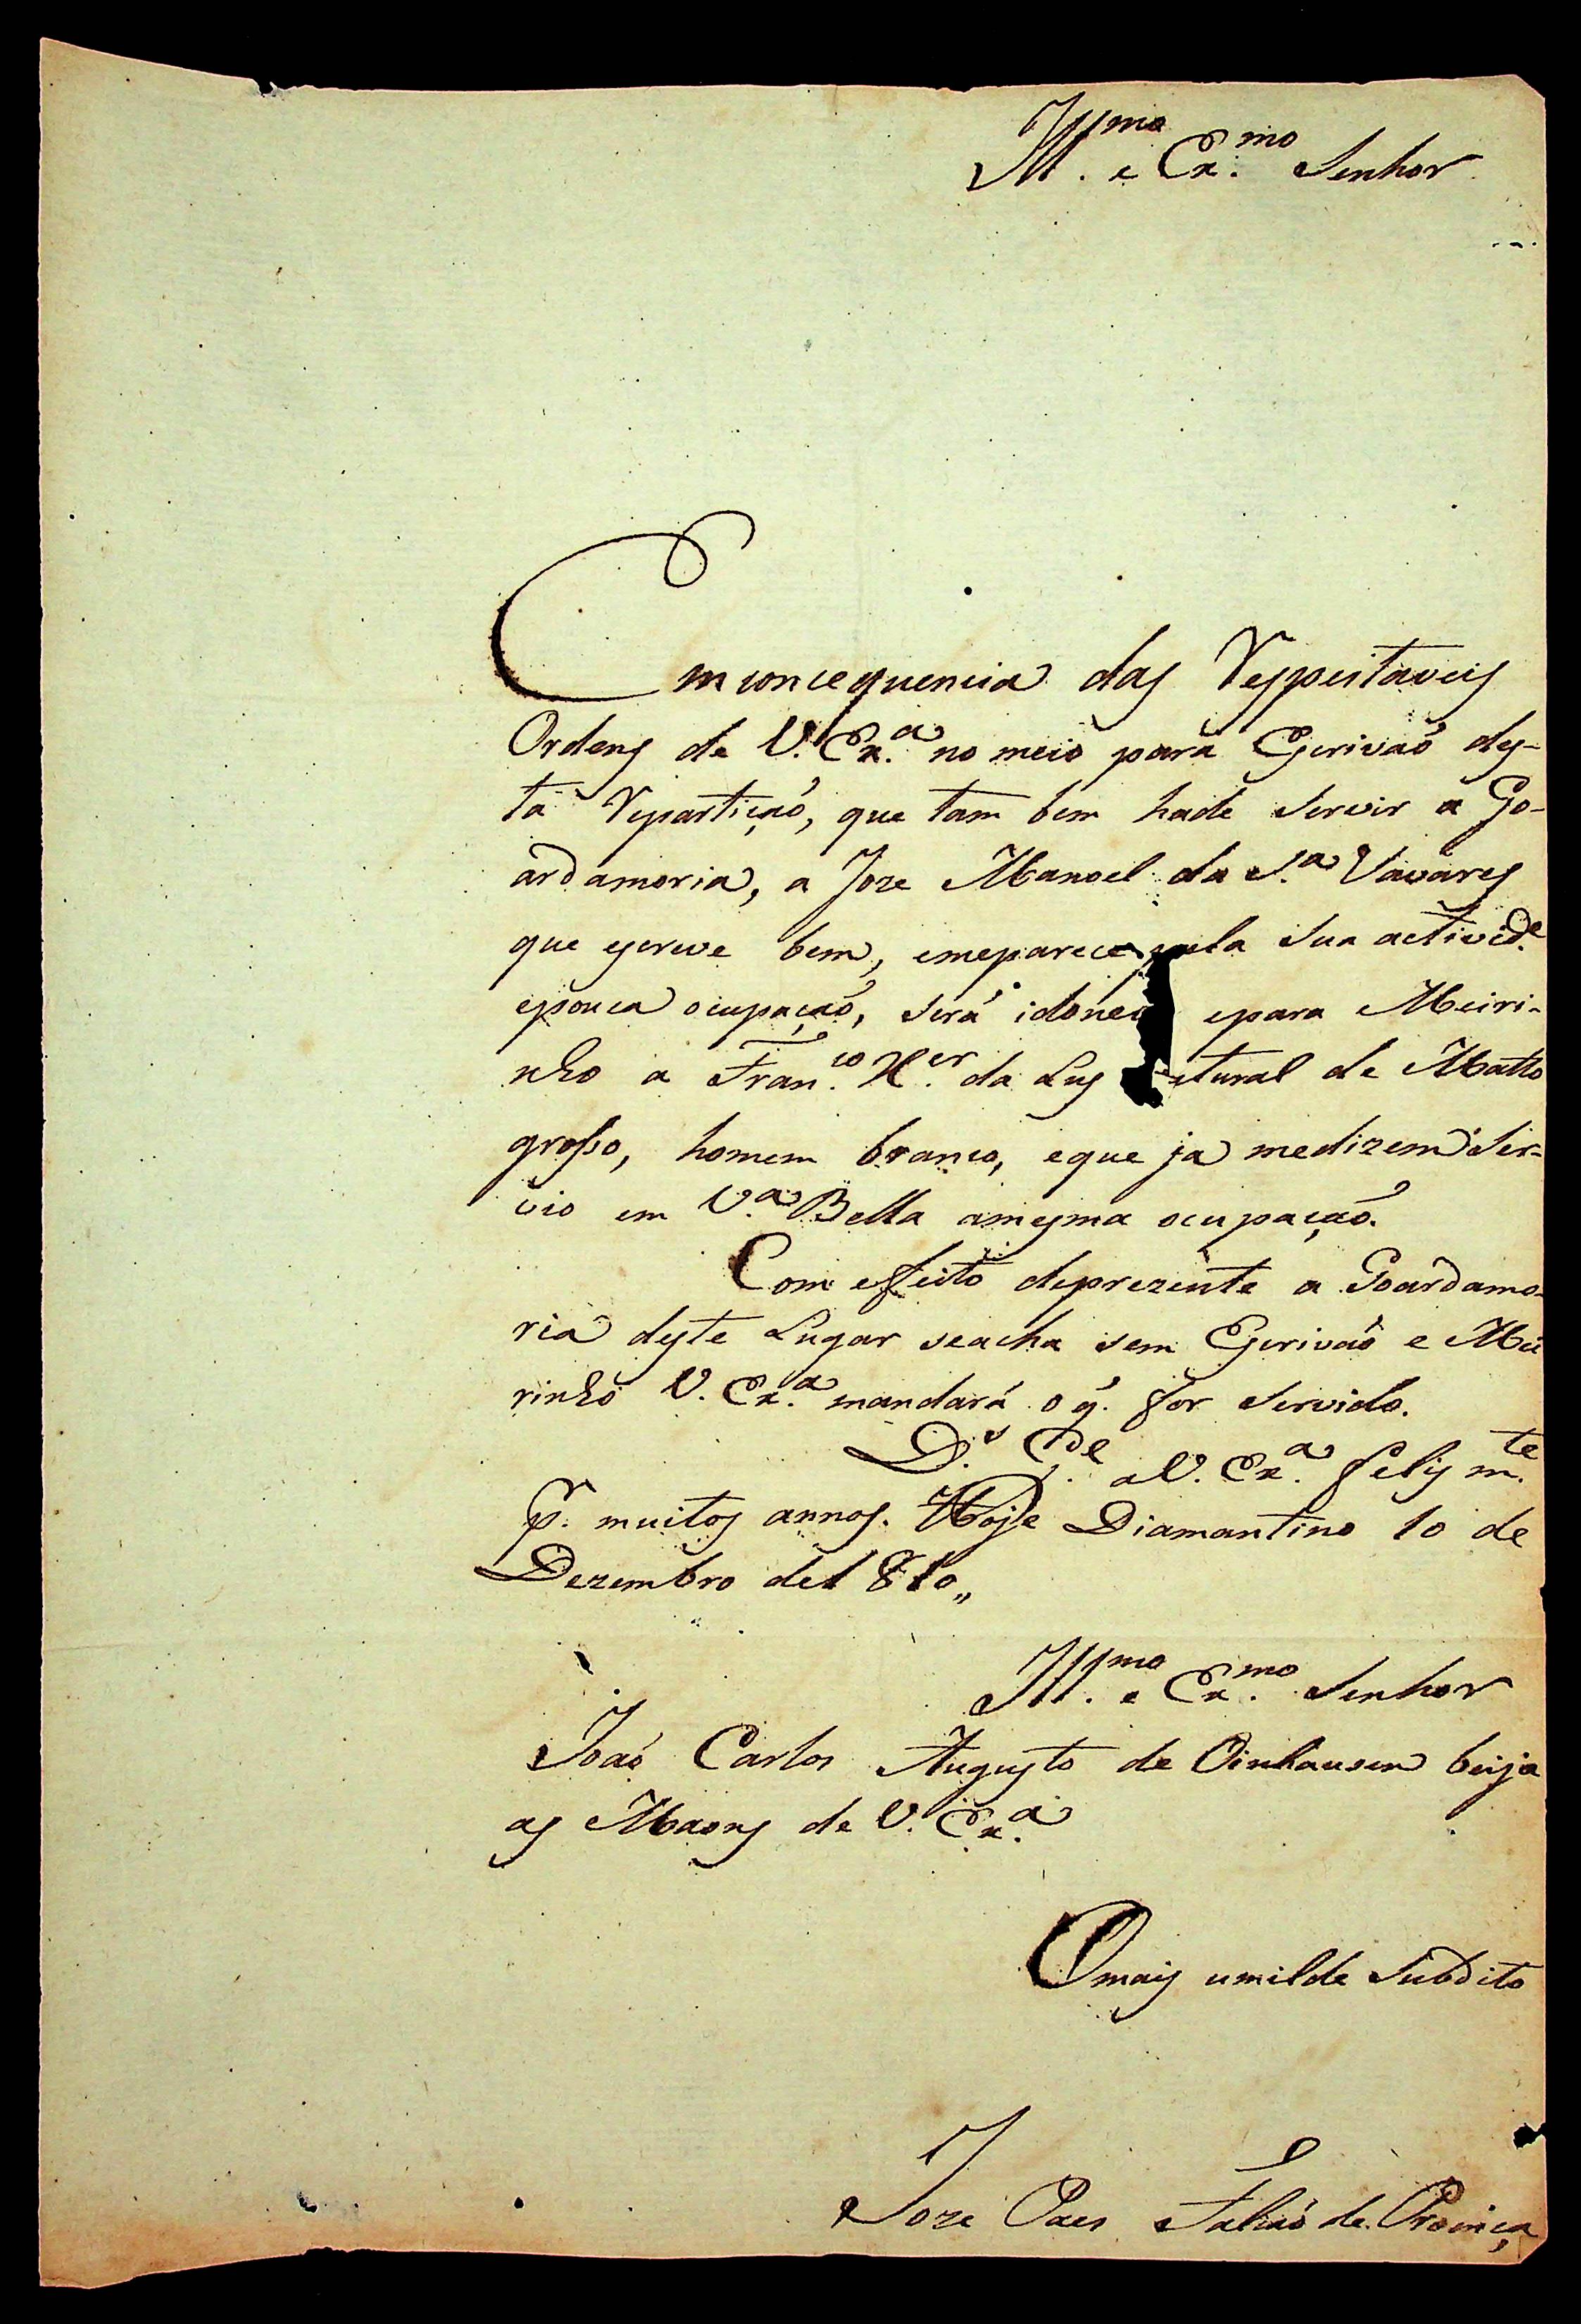 Ill.mo e Ex.mo Senhor
Em concequencia das Respeitaveis
Ordens de V. Ex.a no meio para Escrivaõ des-
ta Repartiçaõ, que tam bem hade Servir a Go-
ardamoria, a Joze Manoel da S.a Tavares
que escreve bem, emeparece pela Sua activid.e
epouca ocupaçaõ, Será idoneo epara Meiri-
nho a Fran.co X.er da Lus tural de Matto
grosso, homem branco, eque ja medizem Ser-
vio em V.a Bella amesma ocupaçaõ.
Com effeito deprezente a Goardamo-
ria deste Lugar seacha sem Escrivaõ e Mei
rinho V. Ex.a mandará o q̃. for Servido.
D.s G.e a V. Ex.a felis m.te
p.r muitos annos. Hoje Diamantino 10 de
Dezembro de 1810,,
Ill.mo e Ex.mo Senhor
Joaõ Carlos Augusto de Oinhausen beija
as Maons de V. Ex.a
O mais umilde Subdito
Joze Paes Falcaõ de